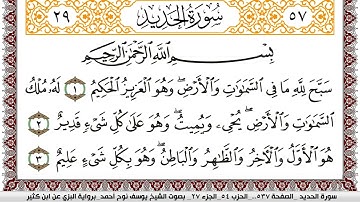 ٢٩ سُورَةُ الحَدِيدِ ٥٧
بِسْمِ اللَّهِ الرَّحْمَٰنِ الرَّحِيمِ
سَبَّحَ لِلَّهِ مَا فِي السَّمَٰوَٰتِ وَالْأَرْضِ وَهُوَ الْعَزِيزُ الْحَكِيمُ ١ لَهُ مُلْكُ
السَّمَٰوَٰتِ وَالْأَرْضِ يُحْيِ وَيُمِيتُ وَهُوَ عَلَىٰ كُلِّ شَيْءٍ قَدِيرٌ ٢
هُوَ الْأَوَّلُ وَالْآخِرُ وَالظَّٰهِرُ وَالْبَاطِنُ وَهُوَ بِكُلِّ شَيْءٍ عَلِيمٌ ٣
سورة الحديد _ الصفحة ٥٣٧_ الحزب ٥٤_ الجزء ٢٧ _ بصوت الشيخ يوسف نوح أحمد_ برواية البزي عن ابن كثير